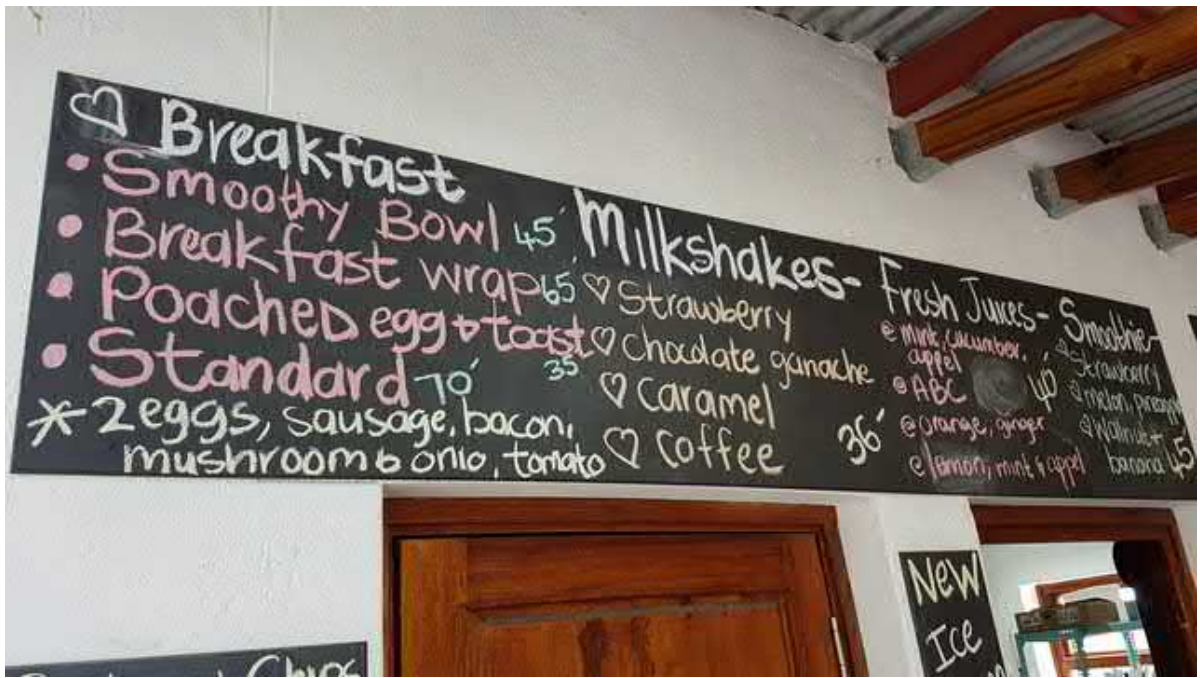 Breakfast
• Smoothy Bowl 45
• Breakfast wrap 65
• Poached egg & toast 35
• Standard 70
* 2 eggs, sausage, bacon,
mushroom & onio, tomato
Milkshakes-
Strawberry
Chocolate ganache
Caramel
Coffee
36
Fresh Juices-
mint, cucumber,
appel
ABC
40
orange, ginger
lemon, mint & appel
Smoothie-
Strawberry
melon, pineapple
Walnut
banana 45
NEW
ICE
Chips